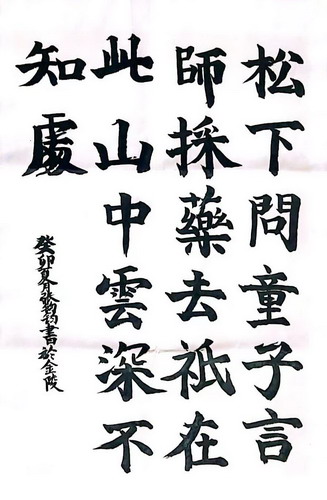 松下問童子言
師採藥去祇在
此山中雲深不
知處
癸卯夏月張書於金陵